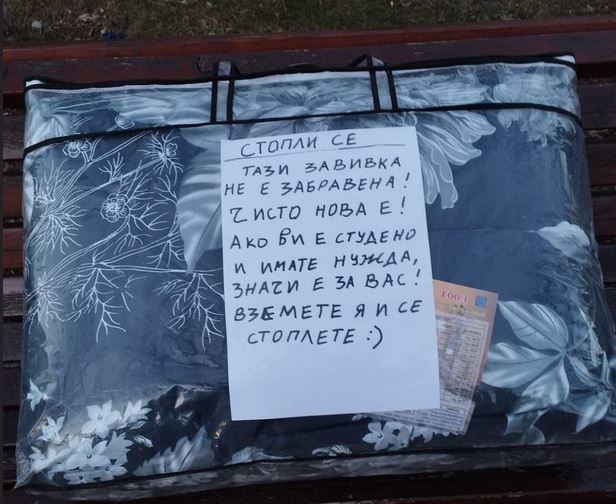 СТОПЛИ СЕ
ТАЗИ ЗАВИВКА
НЕ Е ЗАБРАВЕНА!
ЧИСТО НОВА Е!
АКО ВИ Е СТУДЕНО
И ИМАТЕ НУЖДА,
ЗНАЧИ Е ЗА ВАС!
ВЗЕМЕТЕ Я И СЕ
СТОПЛЕТЕ :)